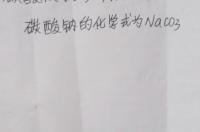 碳酸钠的化学式为NaCO3